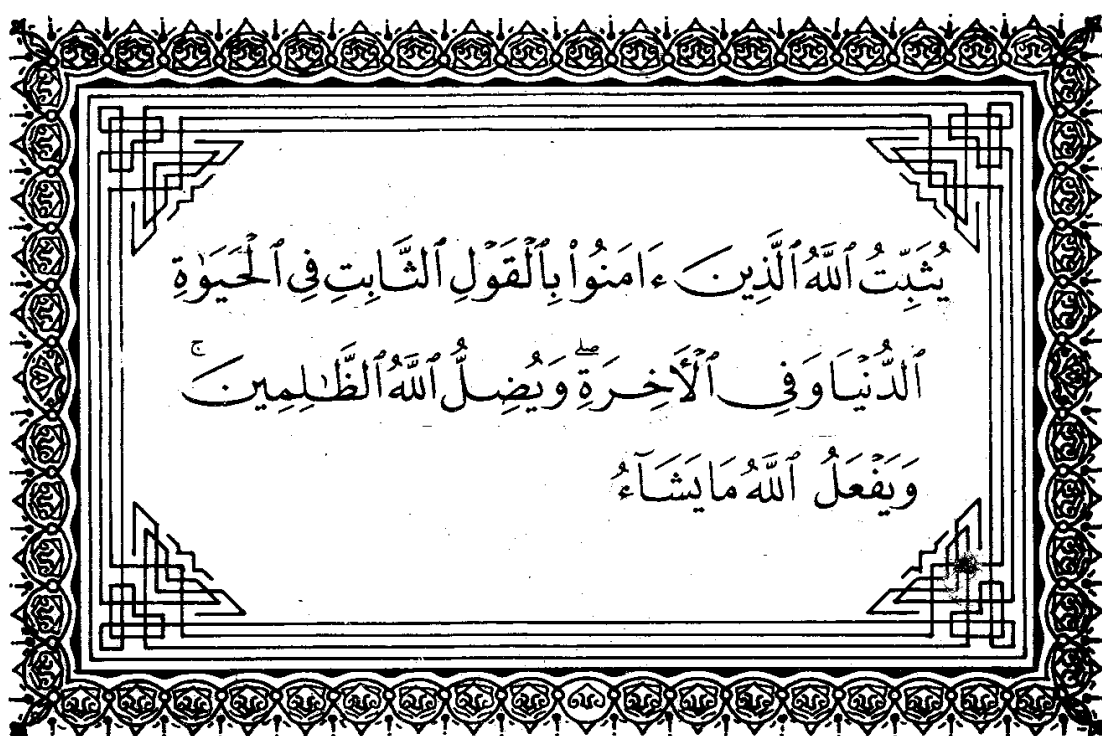 يُثَبِّتُ ٱللَّهُ ٱلَّذِينَ ءَامَنُوا۟ بِٱلْقَوْلِ ٱلثَّابِتِ فِي ٱلْحَيَوٰةِ
ٱلدُّنْيَا وَفِي ٱلْأَخِرَةِۖ وَيُضِلُّ ٱللَّهُ ٱلظَّٰلِمِينَۚ
وَيَفْعَلُ ٱللَّهُ مَا يَشَآءُ